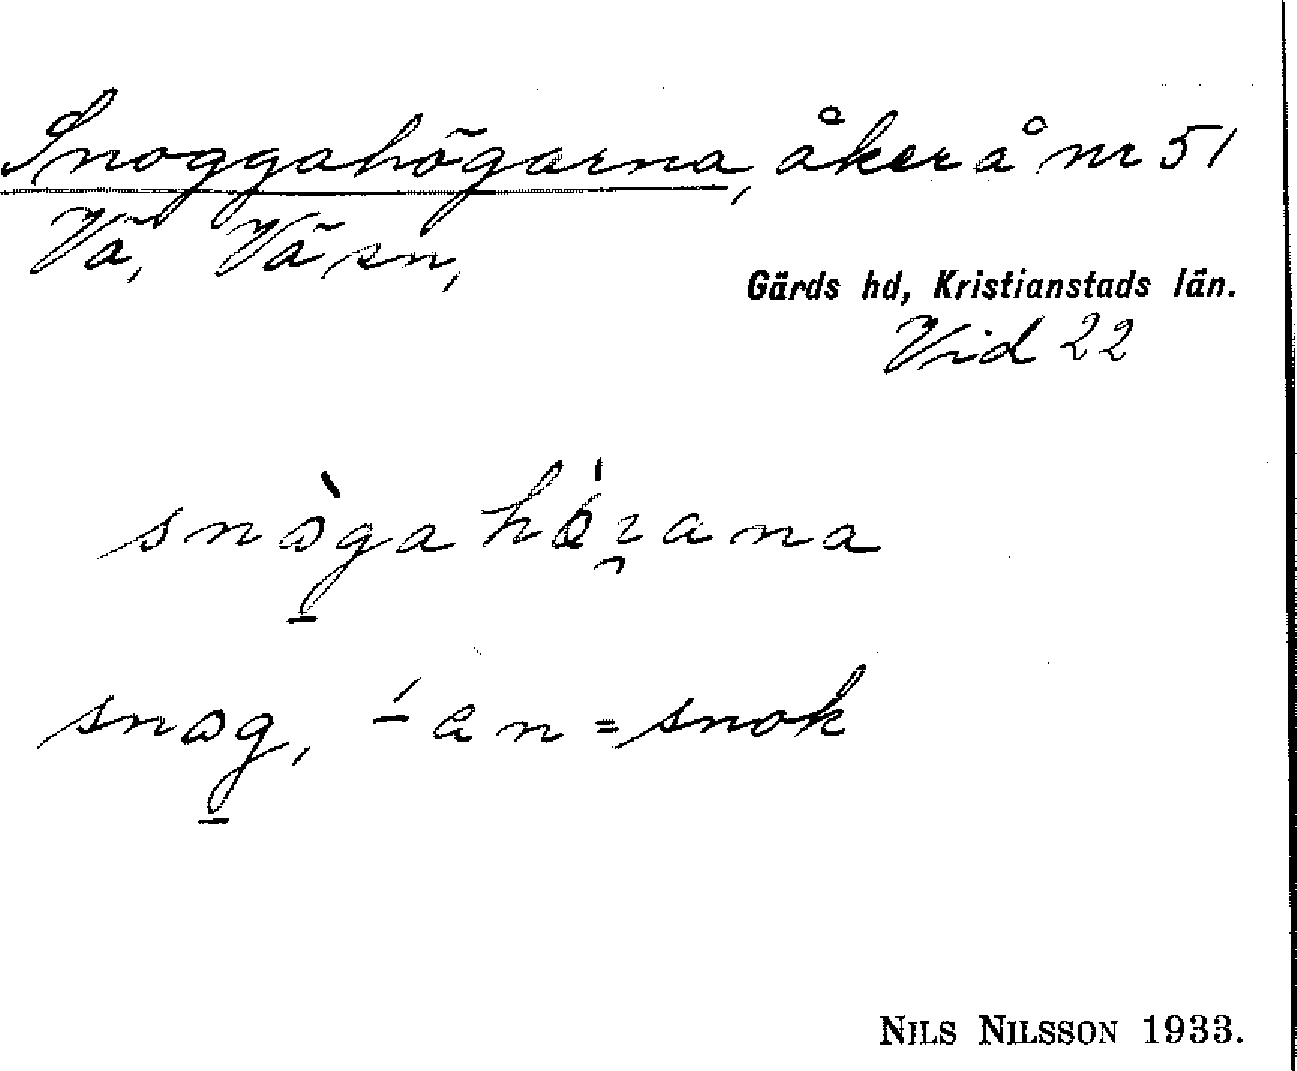 Snoggahögarna, åker å nr 51
Vä, Vä sn,
Gärds hd, Kristianstads län.
Vid 22
snog, -́en = snok
NILS NILSSON 1933.